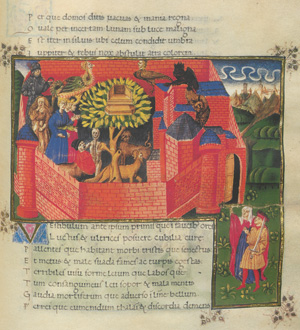 Perque domos ditis uacuas & inania regna
Quale per incertam lunam sub luce maligna
Est iter in siluis ubi celum condidit umbra
Iuppiter & rebus nox abstulit atra colorem
Vestibulum ante ipsum primisque in faucibus orci
Luctus & ultrices posuere cubilia cure
Pallentes que habitant morbi tristis que senectus
Et metus & male suada fames ac turpis egestas
Terribiles uisu forme letum que labos que
Tum consanguineus leti sopor & mala mentis
Gaudia mortiferum que aduerso in limine bellum
Ferrei que eumenidum thalami & discordia demens